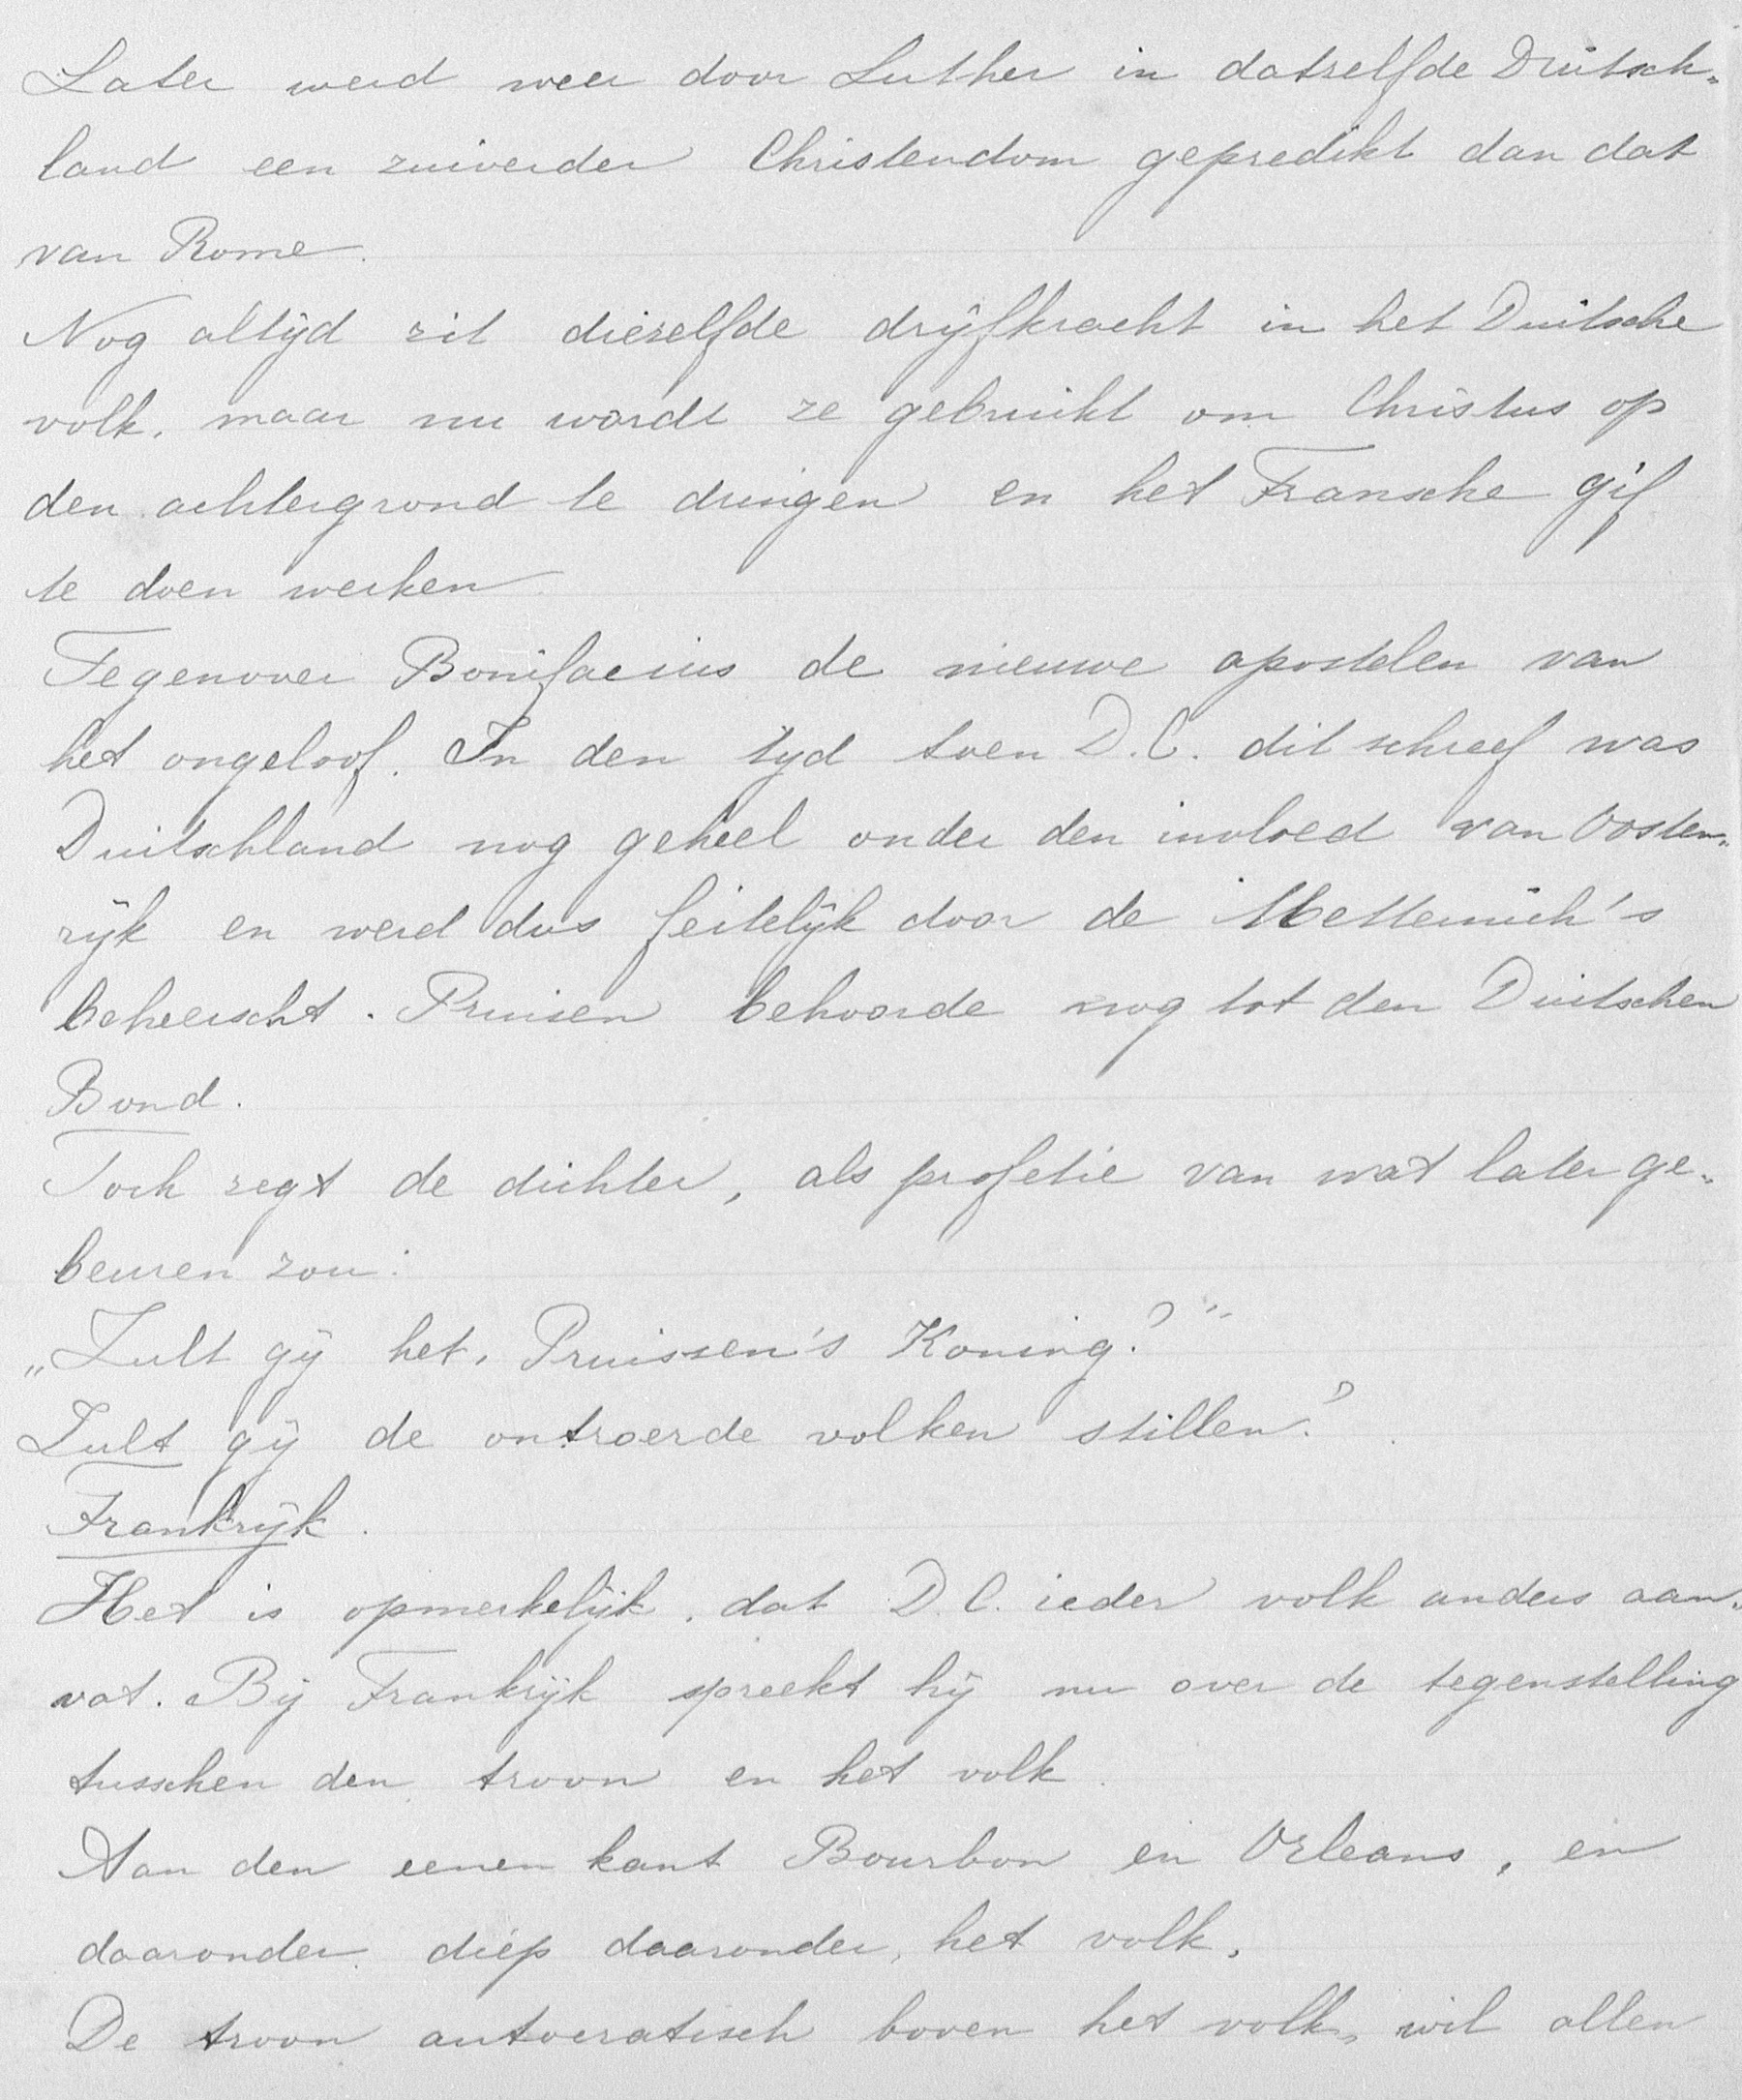 Later werd weer door Luther in datzelfde Duitsch-
land een zuiverder Christendom gepredikt dan dat
van Rome.
Nog altijd zit diezelfde drijfkracht in het Duitsche
volk, maar nu wordt ze gebruikt om Christus op
den achtergrond te dringen en het Fransche gif
te doen werken
Tegenover Bonifacius de nieuwe apostelen van
het ongeloof. In den tijd toen D.C. dit schreef was
Duitschland nog geheel onder den invloed van Oosten-
rijk en werd dus feitelijk door de Metternich's
beheerscht. Pruisen behoorde nog tot den Duitschen
Bond.
Toch zegt de dichter, als profetie van wat later ge-
beuren zou:
„Zult gij het, Pruissen's Koning?"
Zult gij de ontroerde volken stillen?
Frankrijk.
Het is opmerkelijk, dat D.C. ieder volk anders aan-
vat. Bij Frankrijk spreekt hij nu over de tegenstelling
tusschen den troon en het volk.
Aan den eenen kant Bourbon en Orleans, en
daaronder, diep daaronder, het volk.
De troon autocratisch boven het volk, wil allen